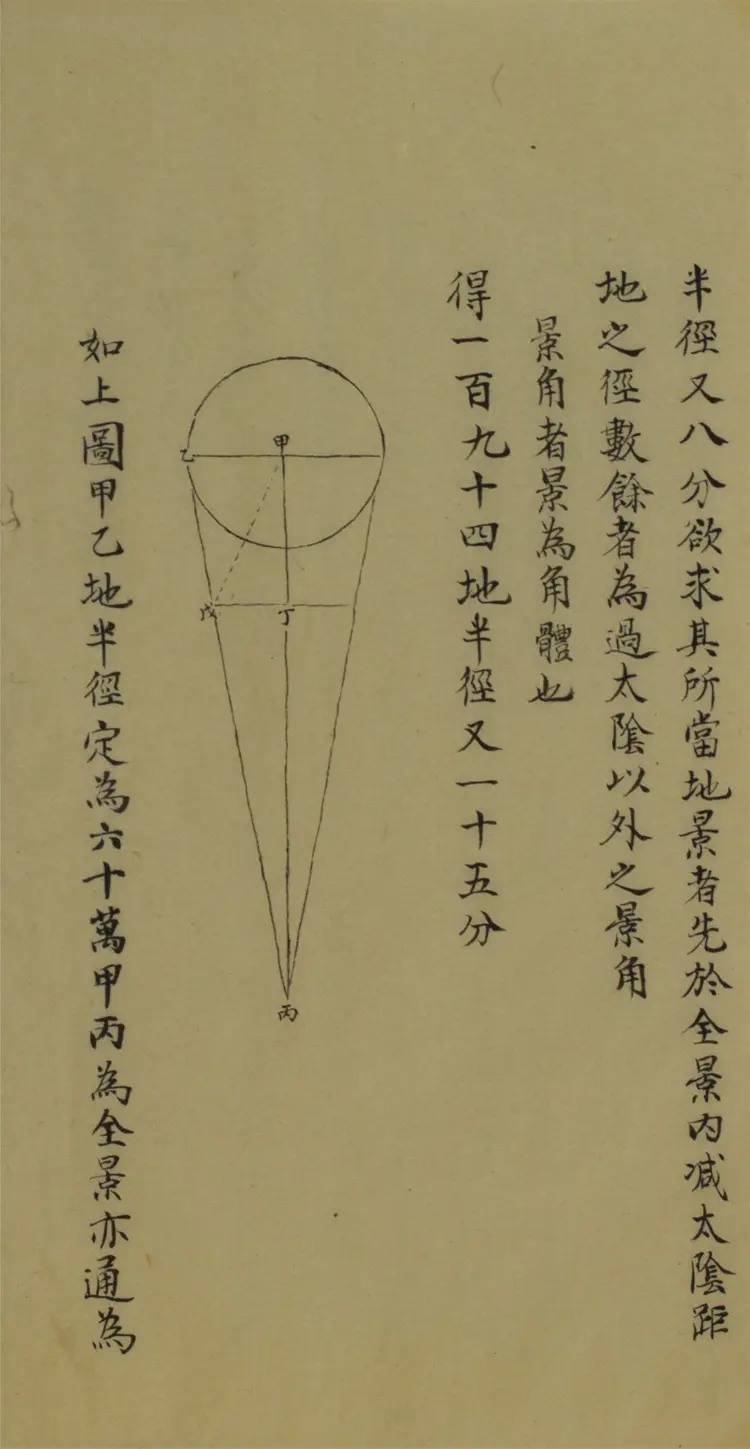 半徑又八分欲求其所當地景者先於全景内減太陰距
地之徑數餘者為過太陰以外之景角
景角者景為角體也
得一百九十四地半徑又一十五分
甲
乙
戊
丁
丙
如上圖甲乙地半徑定為六十萬甲丙為全景亦通為